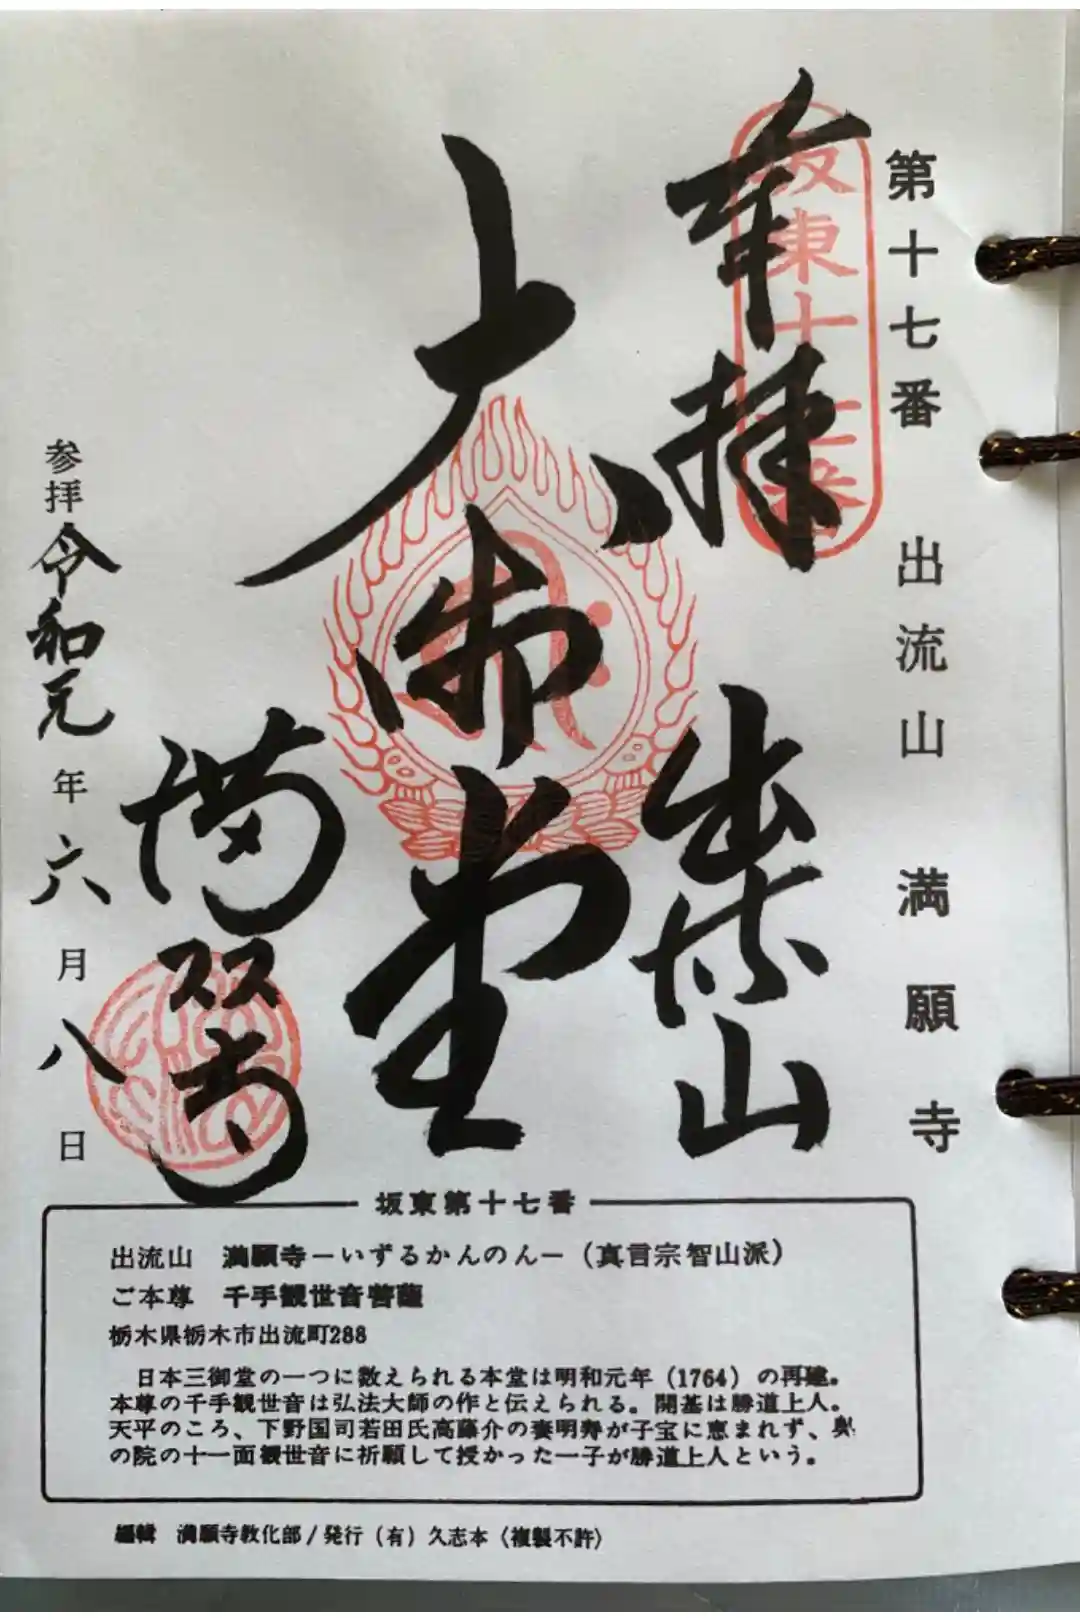 第十七番 出流山 満願寺
奉拝
坂東十七番
出流山
大御堂
満願寺
参拝 令和元年六月八日
坂東第十七番
出流山 満願寺－いずるかんのん－（真言宗智山派）
ご本尊 千手観世音菩薩
栃木県栃木市出流町288
日本三御堂の一つに数えられる本堂は明和元年（1764）の再建。
本尊の千手観世音は弘法大師の作と伝えられる。開基は勝道上人。
天平のころ、下野国司若田氏高藤介の妻明寿が子宝に恵まれず、奥
の院の十一面観世音に祈願して授かった一子が勝道上人という。
編輯 満願寺教化部/発行（有）久志本〈複製不許〉